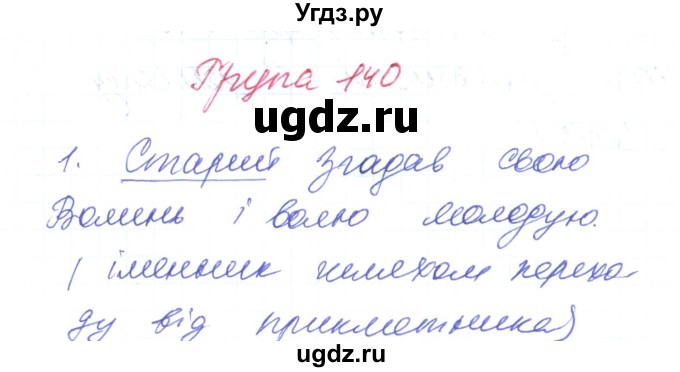 Угдз.ру
Група 140
ugdz.ru
1. Старий згадав свою
Волинь і волю молодую.
(іменник шляхом перехо-
ду від прикметника)
ugdz.ru